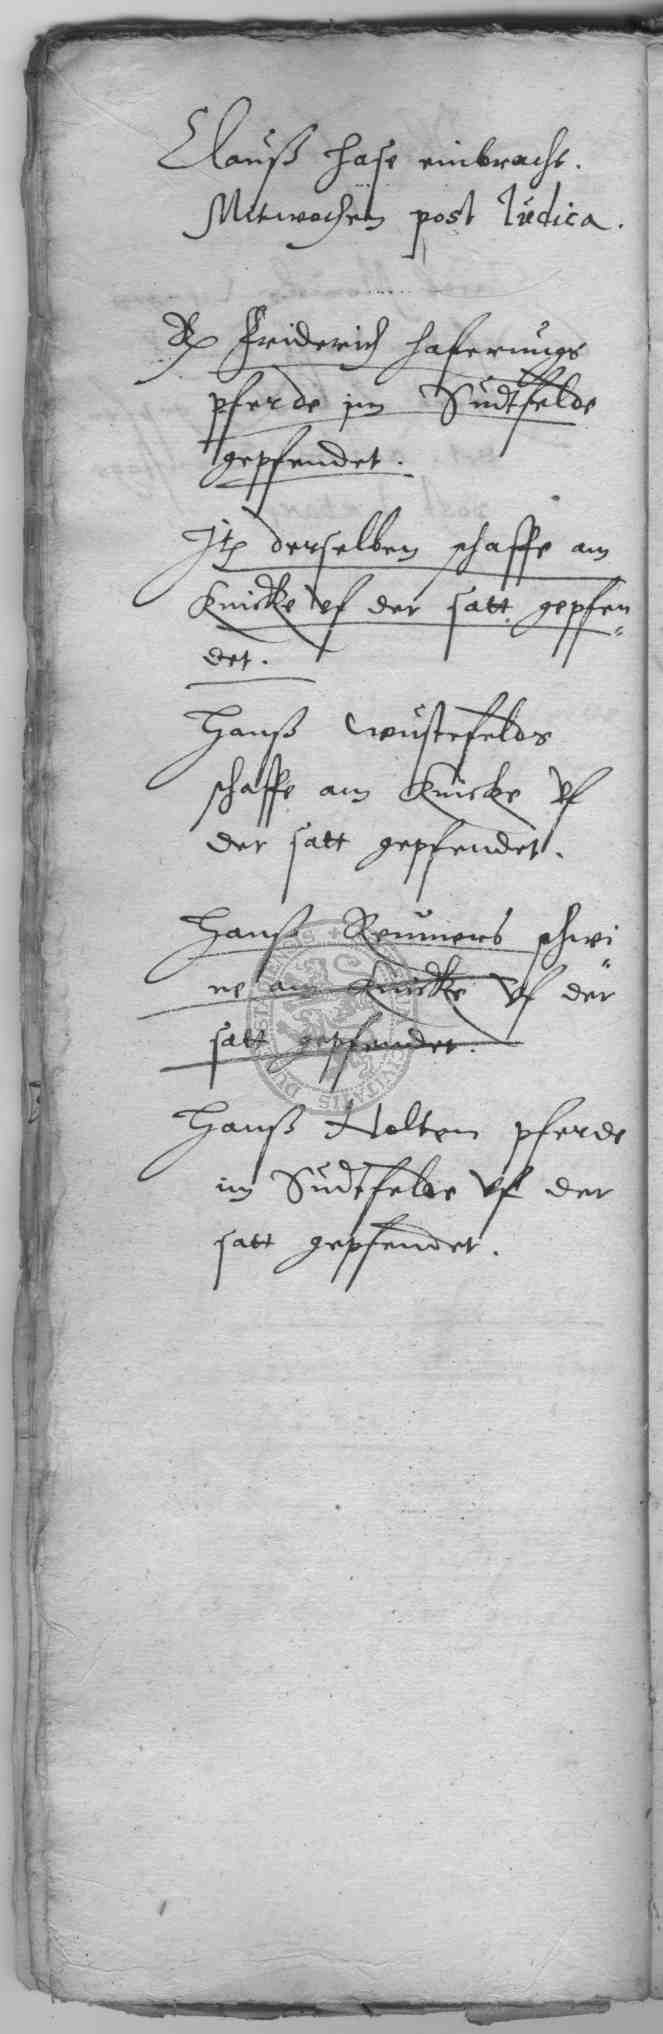 Clauß Hase einbracht.
Mitwochen post Iudica.
Friderich Haferungs
pferde im Sudtfelde
gepfendet.
It derselben schaffe am
Knicke vf der satt gepfen
det.
Hanß Wüstefelds
schaffe am Knicke vf
der satt gepfendet.
Hanß Reümers schwi
ne am Knicke vf der
satt gepfendet.
Hanß Nolten pferde
im Südtfelde vf der
satt gepfendet.